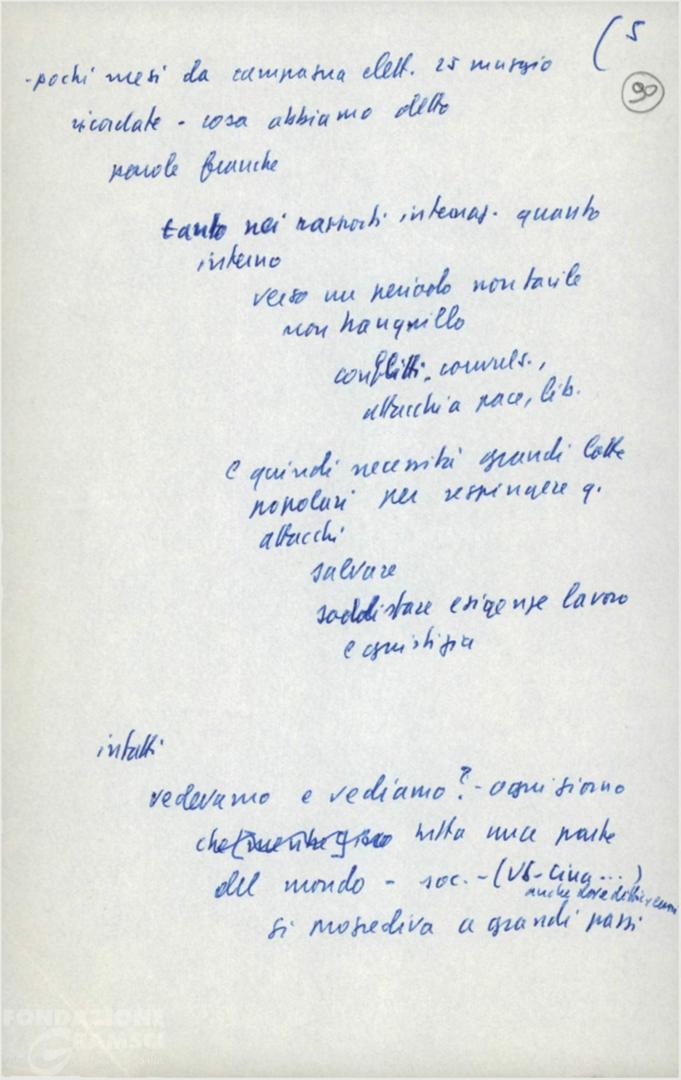 ( 5
90
- pochi mesi da campagna elett. 25 maggio
ricordate - cosa abbiamo detto
parole franche
tanto nei rapporti internaz. quanto
interno
verso un periodo non facile
non tranquillo
conflitti, convuls.,
attacchi a pace, lib.
e quindi necessità grandi lotte
popolari per respingere q.
attacchi
salvare
soddisfare esigenze lavoro
e giustizia
infatti
vedevamo e vediamo? - ogni giorno
che [mentre] tutta una parte
del mondo - soc. - (US - Cina ...)
anche dove
si progrediva a grandi passi
FONDAZIONE
GRAMSCI